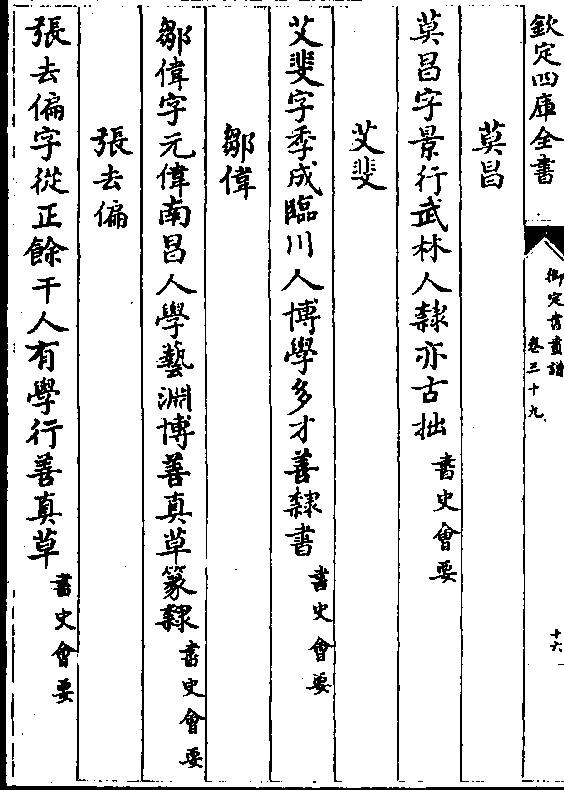 欽定四庫全書
御定書畫譜
卷三十九
十六
莫昌
莫昌字景行武林人隸亦古拙書史會要
艾斐
艾斐字季成臨川人博學多才善隸書書史會要
鄒偉
鄒偉字元偉南昌人學藝淵博善真草篆隸書史會要
張去偏
張去偏字從正餘干人有學行善真草書史會要